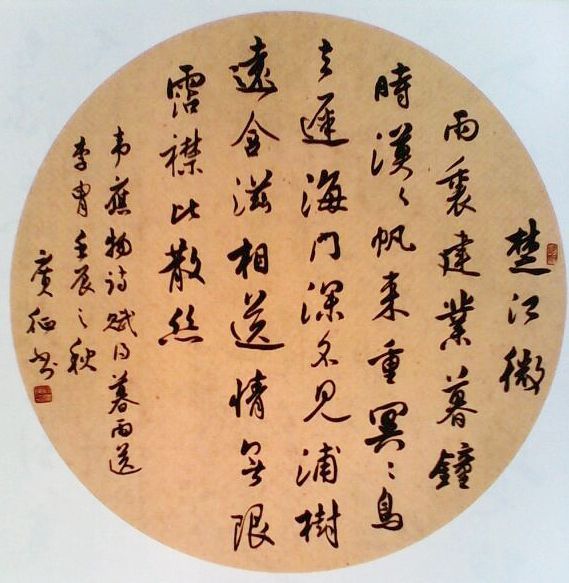 楚江微
雨裏建業暮鐘
時漠々帆来重冥々鳥
去遲海门深不見浦樹
遠含滋相送情無限
霑襟比散絲
韦應物诗賦得暮雨送
李胄壬辰之秋
廣征书